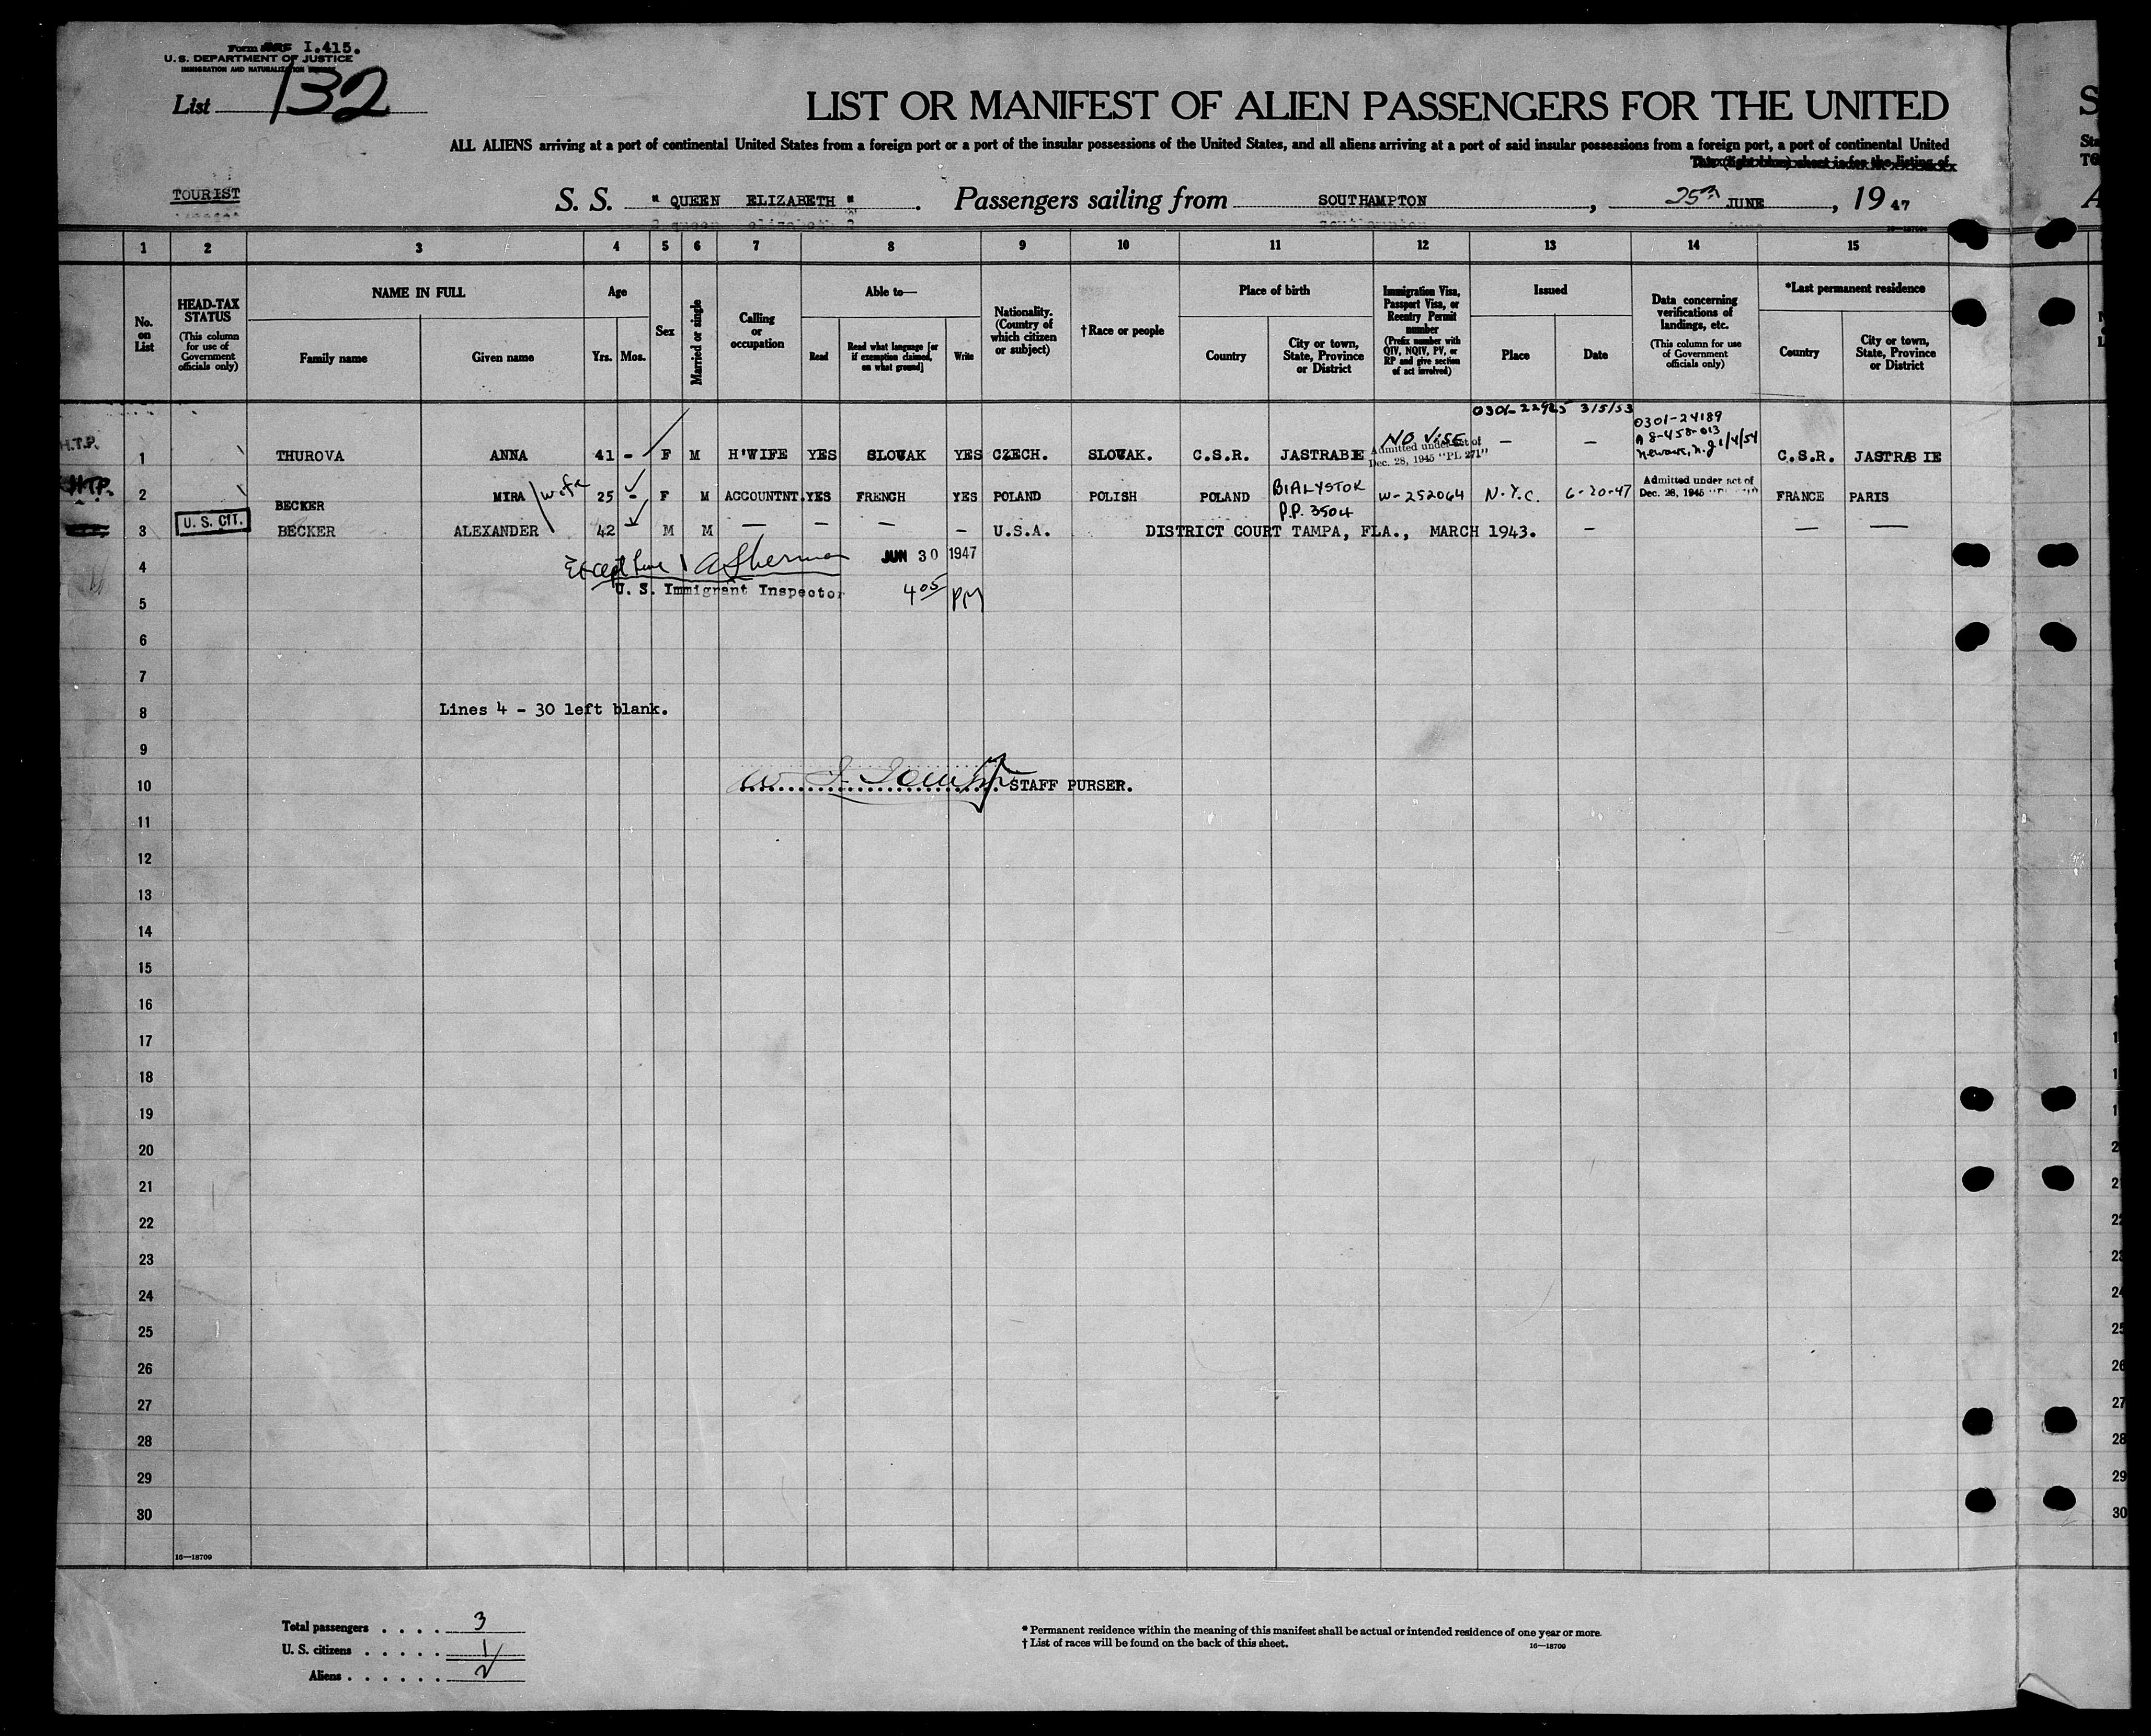 Form I.415.
U. S. DEPARTMENT OF JUSTICE
IMMIGRATION AND NATURALIZATION SERVICE
List 132
LIST OR MANIFEST OF ALIEN PASSENGERS FOR THE UNITED
ALL ALIENS arriving at a port of continental United States from a foreign port or a part of the insular possessions of the United States, and all aliens arriving at a port of said insular possessions from a foreign port, a part of continental United
This (light blue) sheet is for the listing of
TOURIST
S. S. " QUEEN ELIZABETH " . Passengers sailing from SOUTHAMPTON , 25th JUNE , 19 47
16—18709
1 2 3 4 5 6 7 8 9 10 11 12 13 14 15
No. on List
HEAD-TAX STATUS
(This column for use of Government officials only)
NAME IN FULL
Family name
Given name
Age
Yrs.
Mos.
Sex
Married or single
Calling or occupation
Able to—
Read
Read what language [or if exemption claimed, on what ground]
Write
Nationality. (Country of which citizen or subject)
†Race or people
Place of birth
Country
City or town, State, Province or District
Immigration Visa, Passport Visa, or Reentry Permit number
(Prefix number with QIV, NQIV, PV, or RP and give section of act involved)
Issued
Place
Date
Data concerning verifications of landings, etc.
(This column for use of Government officials only)
*Last permanent residence
Country
City or town, State, Province or District
0301-22925 3/5/53
0301-24189
A 8-458-013
Newark, N.J 1/4/54
H.T.P. 1 THUROVA ANNA 41 - F M H'WIFE YES SLOVAK YES CZECH. SLOVAK. C.S.R. JASTRABIE NO VISE — — C.S.R. JASTRAB IE
Admitted under act of
Dec. 28, 1945 "PL 271"
HTP. 2 BECKER MIRA wife 25 - F M ACCOUNTNT. YES FRENCH YES POLAND POLISH POLAND BIALYSTOK W-252064 N.Y.C. 6-20-47 FRANCE PARIS
P.P. 3504
Admitted under act of
Dec. 28, 1945
U. S. CIT. 3 BECKER ALEXANDER 42 M M — — — — U.S.A. DISTRICT COURT TAMPA, FLA., MARCH 1943. — — —
4 Except line 1 A Sherman JUN 30 1947
5 U. S. Immigrant Inspector 4 05 PM
6
7
8 Lines 4 - 30 left blank.
9
10 STAFF PURSER.
11
12
13
14
15
16
17
18
19
20
21
22
23
24
25
26
27
28
29
30
16—18709
Total passengers . . . . 3
U. S. citizens . . . . . 1
Aliens . . . . . . 2
* Permanent residence within the meaning of this manifest shall be actual or intended residence of one year or more.
† List of races will be found on the back of this sheet.
16—18709